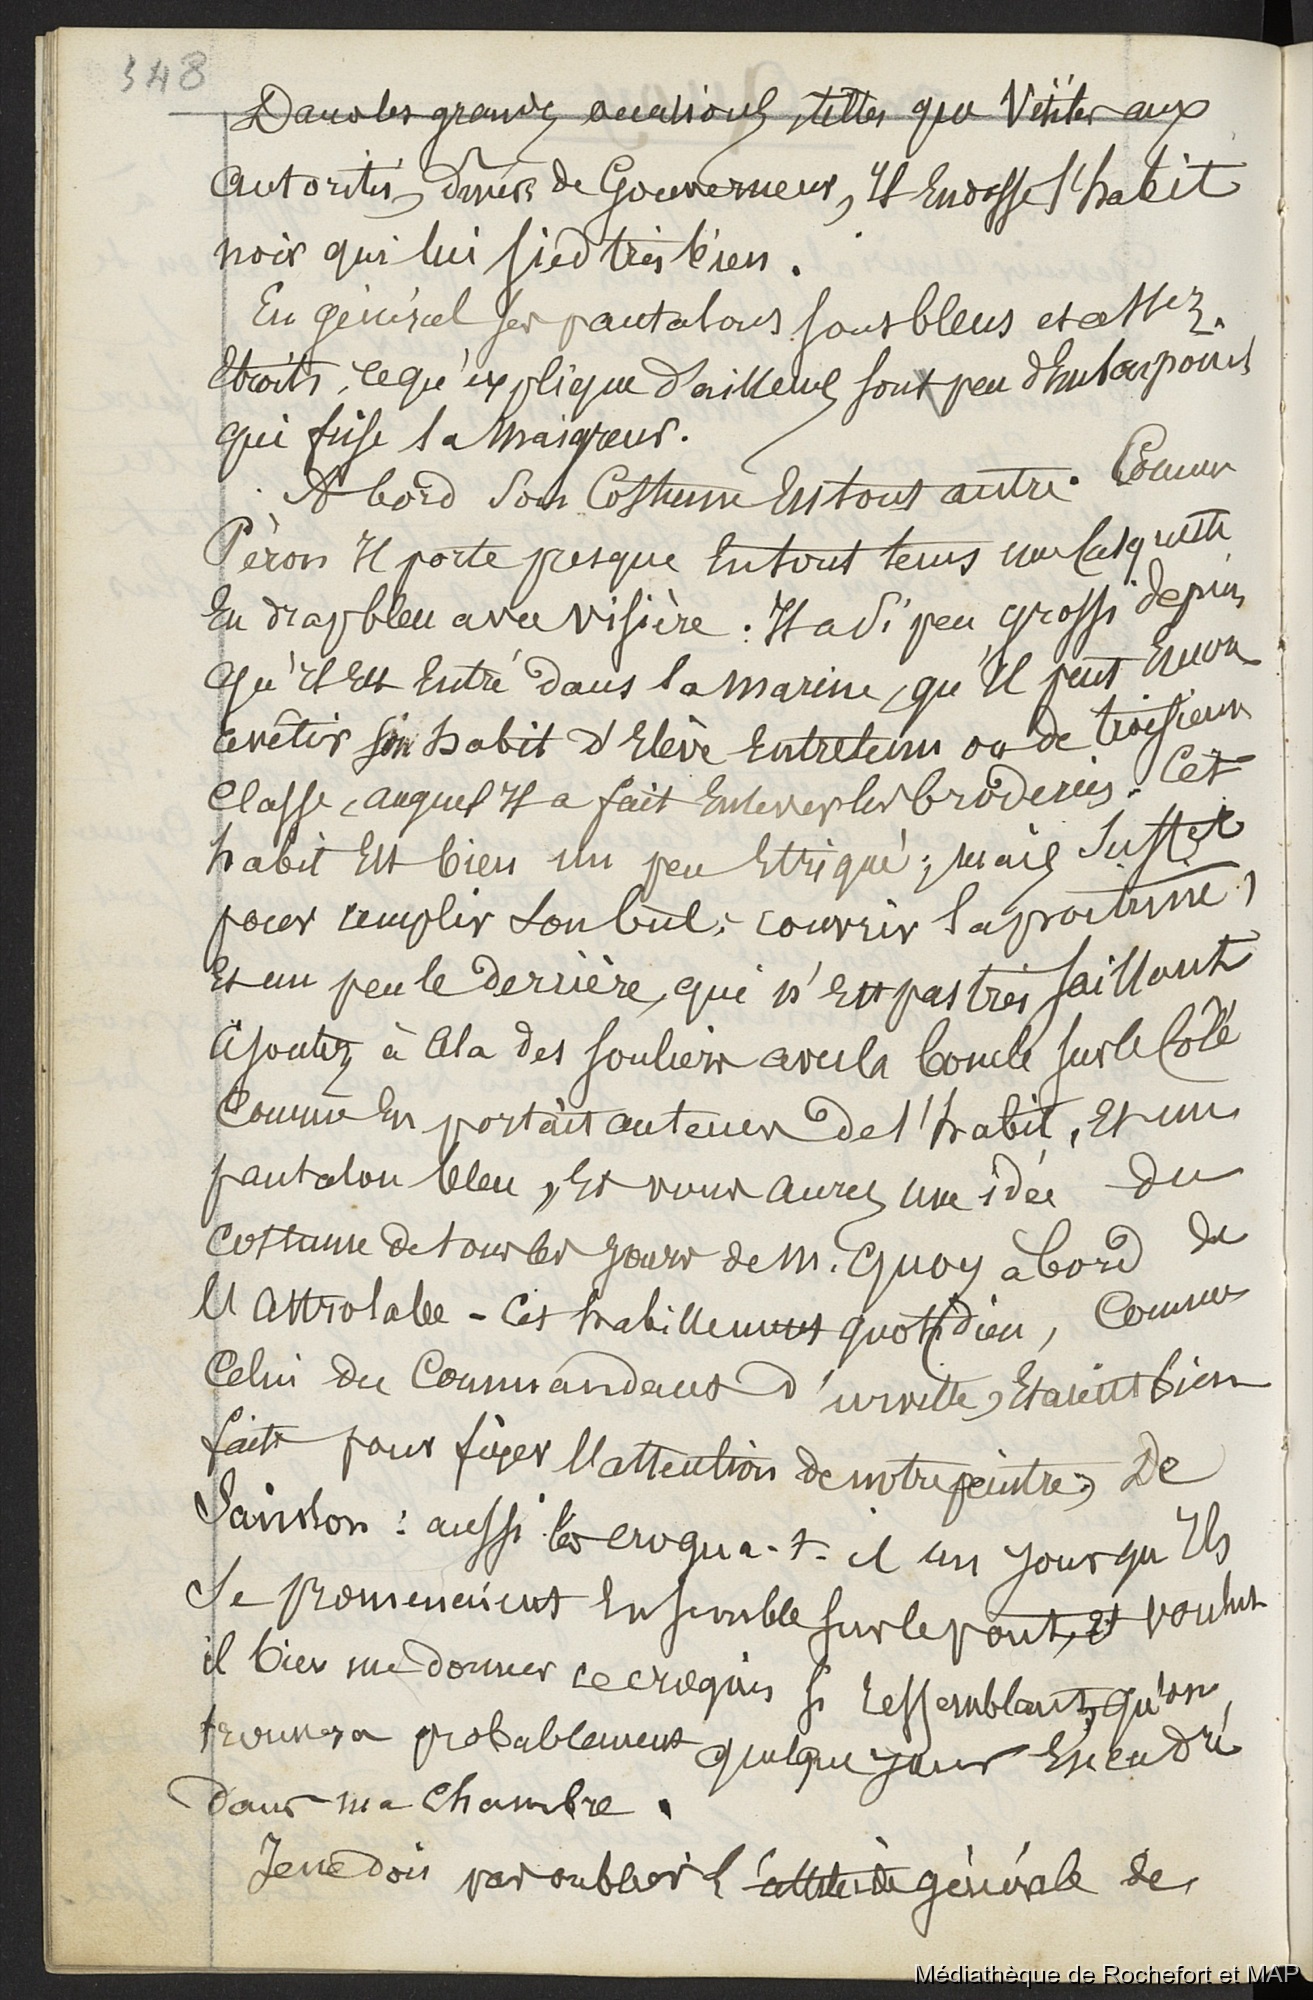 348
Dans les grandes occasions, telles que Visites aux
autorités, dîners de Gouverneur, Il Endosse l'habit
noir qui lui sied très bien.
En général ses pantalons sont bleus et assez
Etroits, ce qu'explique d'ailleurs son peu d'Embonpoint
qui frise la maigreur.
A bord Son Costume Est tout autre. Comme
Péron Il porte presque En tout tems une Casquette
En drap bleu avec visière. Il a si peu grossi depuis
qu'Il Est Entré dans la marine, qu'Il peut Encore
revêtir son habit d'Elève Entretenu ou de troisième
Classe, auquel Il a fait Enlever les broderies. Cet
habit Est bien un peu Etriqué; mais Suffit
pour remplir son but: couvrir la poitrine,
Et un peu le derrière, qui n'Est pas très saillant
Ajoutez à Cela des souliers avec la boucle sur le Côté
Comme En portait autems de l'habit, Et un
pantalon bleu, Et vous aurez une idée du
costume de tous les jours de M. Quoy à bord de
l'Astrolabe - Cet habillement quotidien, Comme
Celui du Commandant d'urville, Etaient bien
faits pour fixer l'attention de notre peintre, De
Sainson: aussi les croqua-t-il un jour qu'Ils
Se promenaient Ensemble sur le pont, Et voulut
il bien me donner ce croquis si ressemblant, qu'on
trouvera probablement quelque jour Encadré
dans ma chambre.
Je ne dois pas oublier l'attitude générale de
Médiathèque de Rochefort et MAP